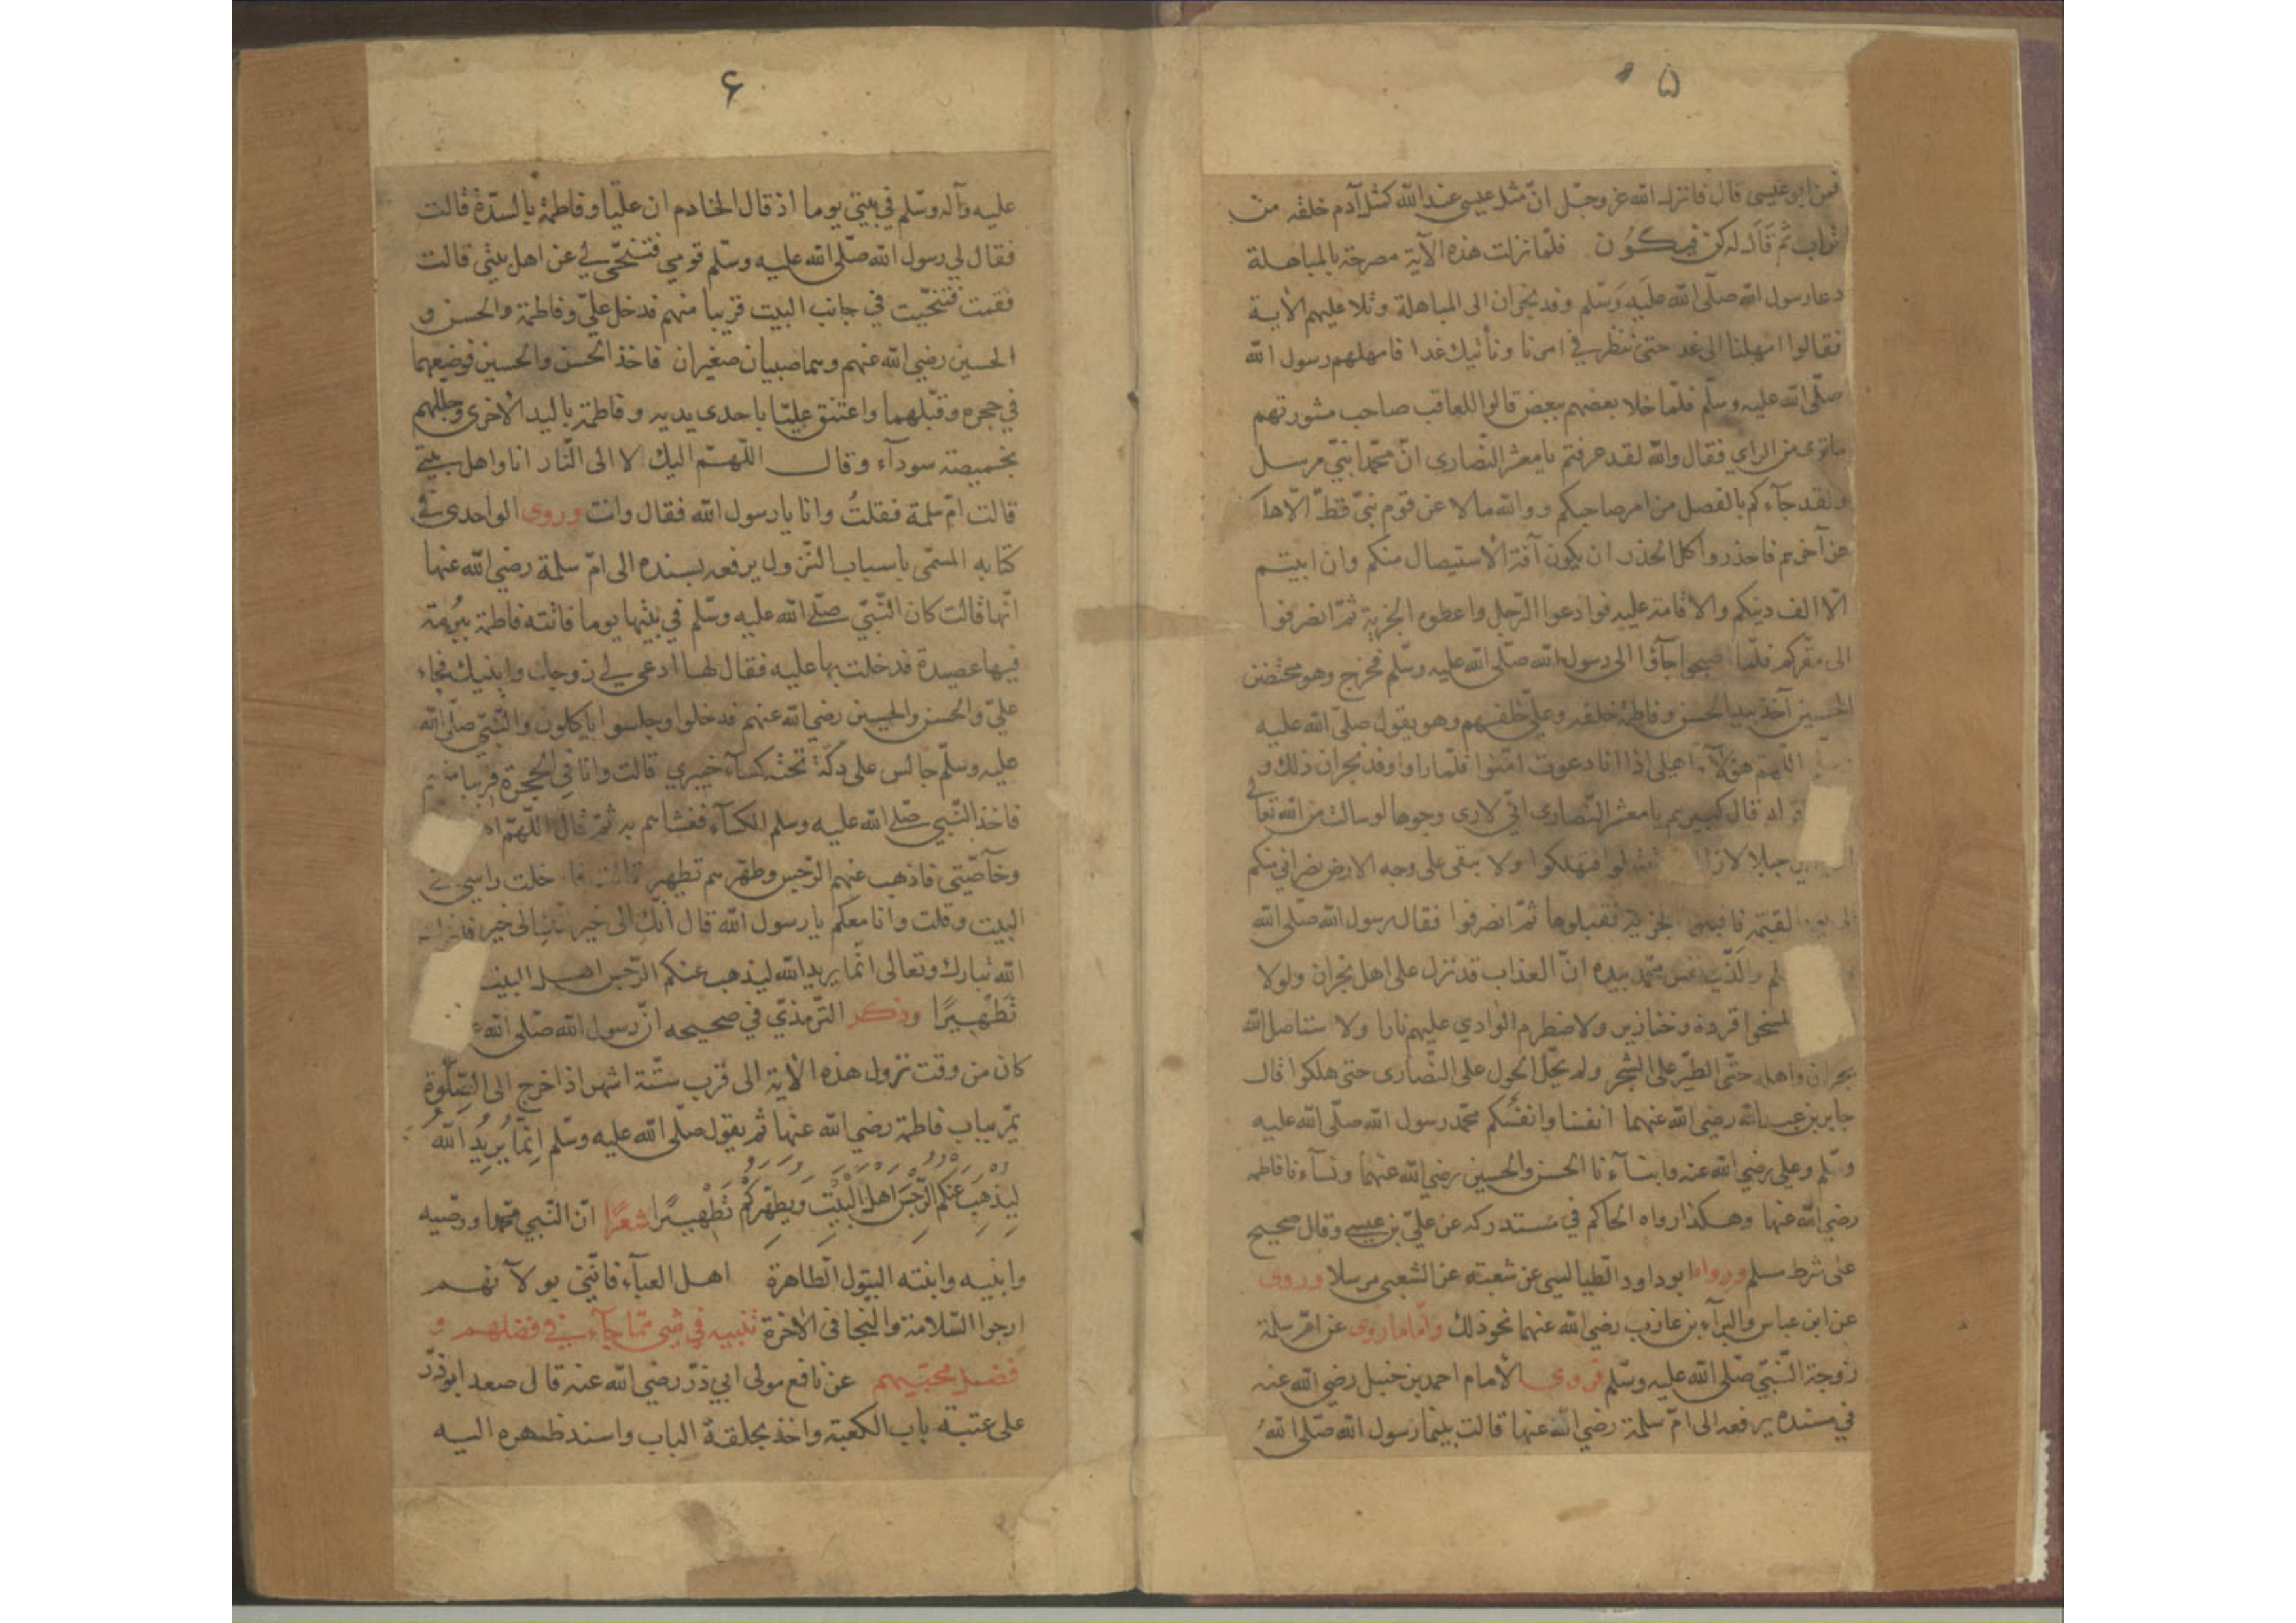 ۵
فمن ابو عيسى قال فانزل الله عز وجل انّ مثل عيسى عند الله كمثل آدم خلقه من
تراب ثم قَالَ له كن فيكُون فلمّا نزلت هذه الآية مصرحة بالمباهلة
دعا رسول الله صلّى الله عليه وَسَلم وفد نجران الى المباهلة وتلا عليهم الآية
فقالوا امهلنا الى غد حتى ننظر في امرنا ونأتيك غدا فامهلهم رسول الله
صلّى الله عليه وسلّم فلمّا خلا بعضهم ببعض قالوا للعاقب صاحب مشورتهم
ما ترى من الراي فقال والله لقد عرفتم يا معشر النّصارى انّ محمّدا نبيّ مرسل
ولقد جآءكم بالفصل من امر صاحبكم ووالله ما لاعن قوم نبيّ قطّ الّا هلك
عن آخرهم فاحذروا كل الحذر ان يكون آفة الاستيصال منكم وان ابيتم
الّا الف دينكم والاقامة عليه فوادعوا الرّجل واعطوه الجزية ثمّ انصرفوا
الى مقرّكم فلمّا اصبحوا جآؤا الى رسول الله صلّى الله عليه وسلّم فخرج وهو محتضن
الحسين آخذ بيد الحسن وفاطمة خلفه وعليّ خلفهم وهو يقول صلّى الله عليه
اللّهم هؤلآء اهلى اذا انا دعوت امّنوا فلمّا راوا وفد نجران ذلك و
قال كبيرهم يا معشر النّصارى انّي لارى وجوها لو سالت من الله تعالى
جبلا لازاله فتهلكوا ولا يبقى على وجه الارض نصراني منكم
القيمة فاقبلوا الجزية فقبلوها ثمّ انصرفوا فقال رسول الله صلّى الله
والّذي نفس محمّد بيده انّ العذاب قد نزل على اهل نجران ولولا
لمسخوا قردة وخنازير ولاضطرم الوادي عليهم نارا ولاستاصل الله
نجران واهله حتّى الطيّر على الشجر ولم يحّل الحول على النّصارى حتى هلكوا قال
جابر بن عبد الله رضي الله عنهما انفسنا وانفسُكم محمّد رسول الله صلّى الله عليه
وسلّم وعلى رضي الله عنه وابنآءنا الحسن والحسين رضي الله عنهما ونسآءنا فاطمة
رضي الله عنها وهكذا رواه الحاكم في مستدركه عن عليّ بن عيسى وقال صحيح
على شرط مسلم ورواه ابو داود الطّيالسي عن شعبته عن الشعبي مرسلا وروى
عن ابن عباس والبرآء بن عازب رضي الله عنهما نحو ذلك وامّا ما روى عن امّ سلمة
زوجة النّبيّ صلّى الله عليه وسلّم فروى الأمام احمد بن حنبل رضي الله عنه
في مسنده يرفعه الى امّ سلمة رضي الله عنها قالت بينما رسول الله صلّى اللهُ
۶
عليه وآله وسّلم في بيتي يوما اذ قال الخادم ان عليّا وفاطمة بالسدّة قالت
فقال لي رسول الله صلّى الله عليه وسلّم قومي فتنحّي لي عن اهل بيتي قالت
فقمت فتنحّيت في جانب البيت قريبا منهم فدخل عليّ وفاطمة والحسن و
الحسين رضي الله عنهم وهما صبيان صغيران فاخذ الحسن والحسين فوضعهما
في حجره وقبّلهما واعتنق عليّا باحدى يديه وفاطمة باليد الاخرى وجللهم
بخميصة سودآء وقال اللّهمّ اليك لا الى النّار انا واهل بيتي
قالت امّ سلمة فقلتُ وانا يا رسول الله فقال وانت وروى الواحدى في
كتابه المسّمى باسباب النّزول يرفعه بسنده الى امّ سلمة رضي الله عنها
انّها قالت كان النّبيّ صلّى الله عليه وسلّم في بيتها يوما فاتته فاطمة ببُرمة
فيها عصيدة فدخلت بها عليه فقال لها ادعى لي زوجك وابنيك فجاء
عليّ والحسن والحسين رضي الله عنهم فدخلوا وجلسوا ياكلون والنّبيّ صلّى الله
عليه وسلّم جالس على دكّة تحته كسآء خيبري قالت وانا في الحجرة قريبا منهم
فاخذ النّبي صلّى الله عليه وسلم الكسآء فغشاهم به ثمّ قال اللّهمّ
وخآصّيتي فاذهب عنهم الرّجس وطهّرهم تطهير خلت راسي في
البيت وقلت وانا معكم يا رسول الله قال انّك الى خير انكِ الى خير فانزل
الله تبارك وتعالى انّما يريد الله ليذهب عنكم الرّجس اهل البيت
تَطْهِيرًا وذكر التّرمذيّ في صحيحه انّ رسول الله صّلى الله
كان من وقت نزول هذه الآية الى قرب ستّة اشهر اذا خرج الى الصّلوة
يمّر بباب فاطمة رضي الله عنها ثم يقول صلّى الله عليه وسلّم اِنّمَا يُرِيُد اللهُ
لِيُذْهِبَ عَنكُم الرِّجْسَ اهلَ الْبَيْتِ وَيُطَهِّرَكُمْ تَطْهِيرًا شعرًا انّ النّبي محمّدا ووصّيه
وابنيه وابنته البتول الطّاهرة اهل العبآء فانّني بولآئهم
ارجوا السّلامة والنجا في الآخرة تنبيه في شئ ممّا جآء في فضلهم و
فضل محبّيهم عن نافع مولى ابي ذرّ رضي الله عنه قال صعد ابو ذرّ
على عتبة باب الكعبة واخذ بحلقة الباب واسند ظهره اليه